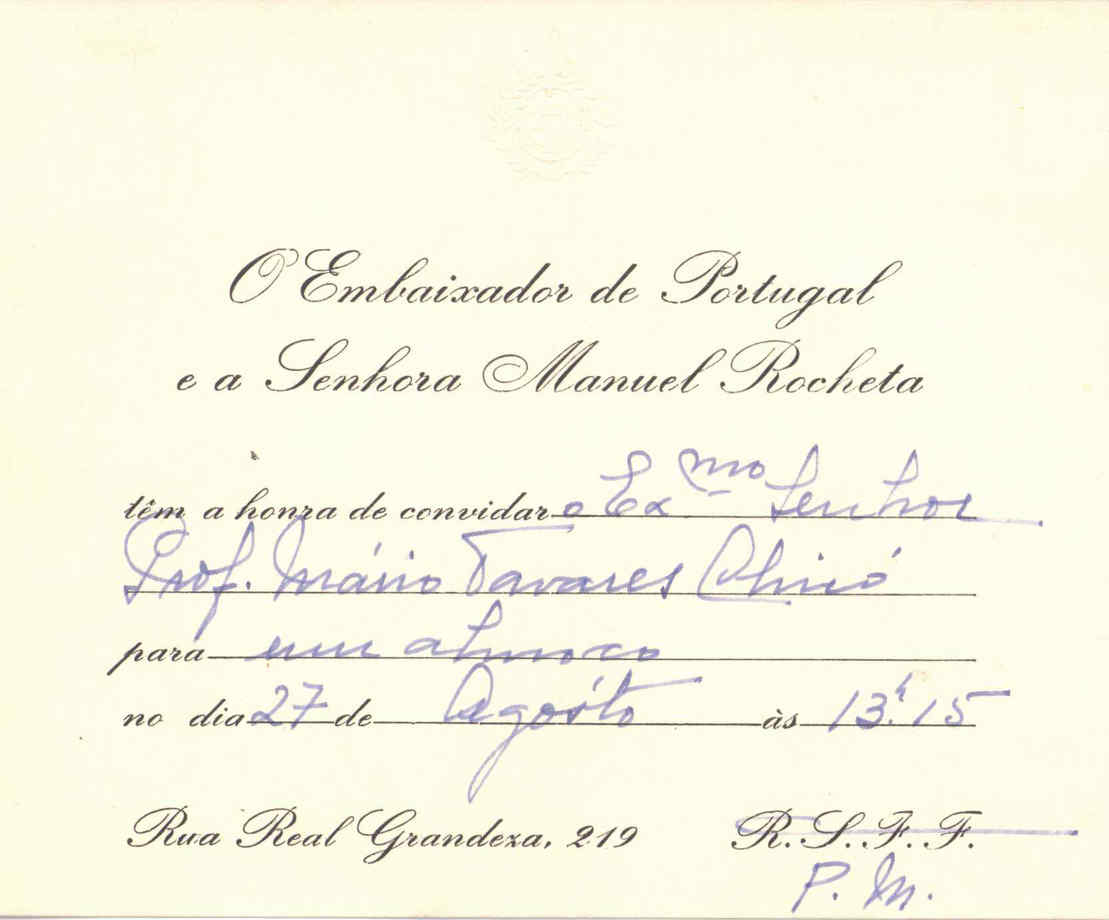 O Embaixador de Portugal
e a Senhora Manuel Rocheta
têm a honra de convidar o Exmo Senhor
Prof. Mário Tavares Chicó
para um almoço
no dia 27 de Agôsto às 13h.15
Rua Real Grandeza, 219 R. S. F. F.
P. M.